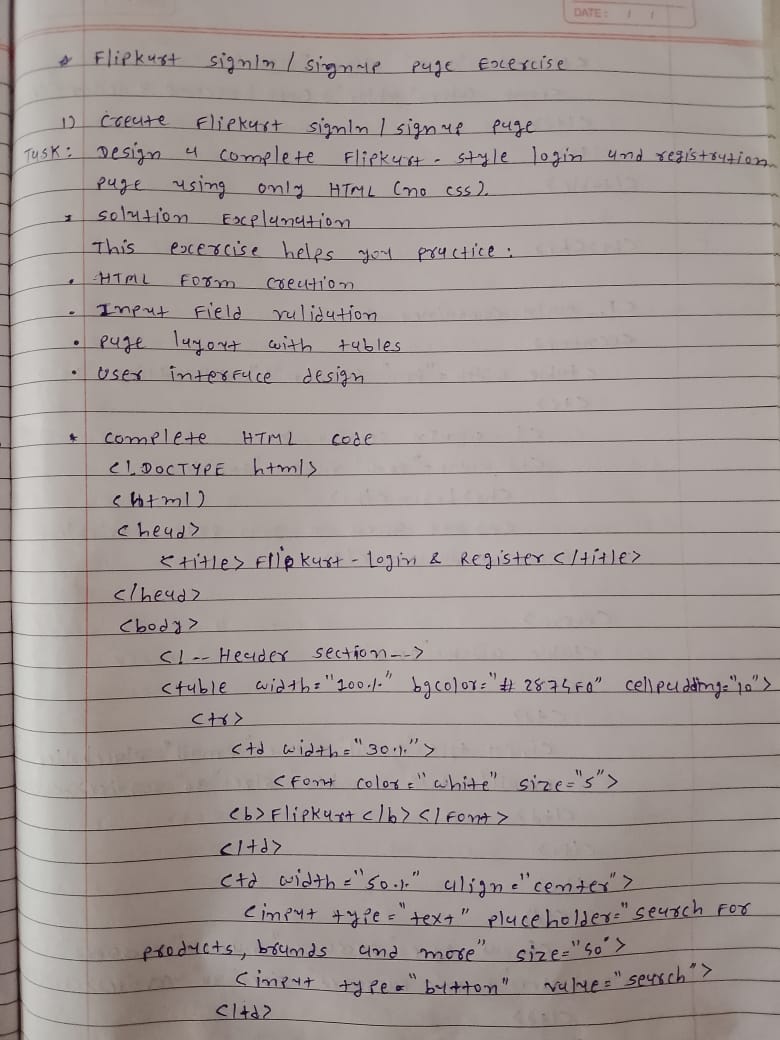 DATE: / /
* Flipkart signIn / signup page Excercise
1) Create Flipkart signIn / signup page
Task: Design a complete Flipkart-style login and registration
page using only HTML (no css).
* solution Explanation
This excercise helps you practice:
• HTML Form creation
• Input Field validation
• page layout with tables
• User interface design
* complete HTML code
<!DOCTYPE html>
<html>
<head>
<title> Flipkart - Login & Register </title>
</head>
<body>
<!-- Header section -->
<table width="100%" bgcolor="#2874F0" cellpadding="10">
<tr>
<td width="30%">
<font color="white" size="5">
<b>Flipkart</b></font>
</td>
<td width="50%" align="center">
<input type="text" placeholder="search for
products, brands and more" size="50">
<input type="button" value="search">
</td>